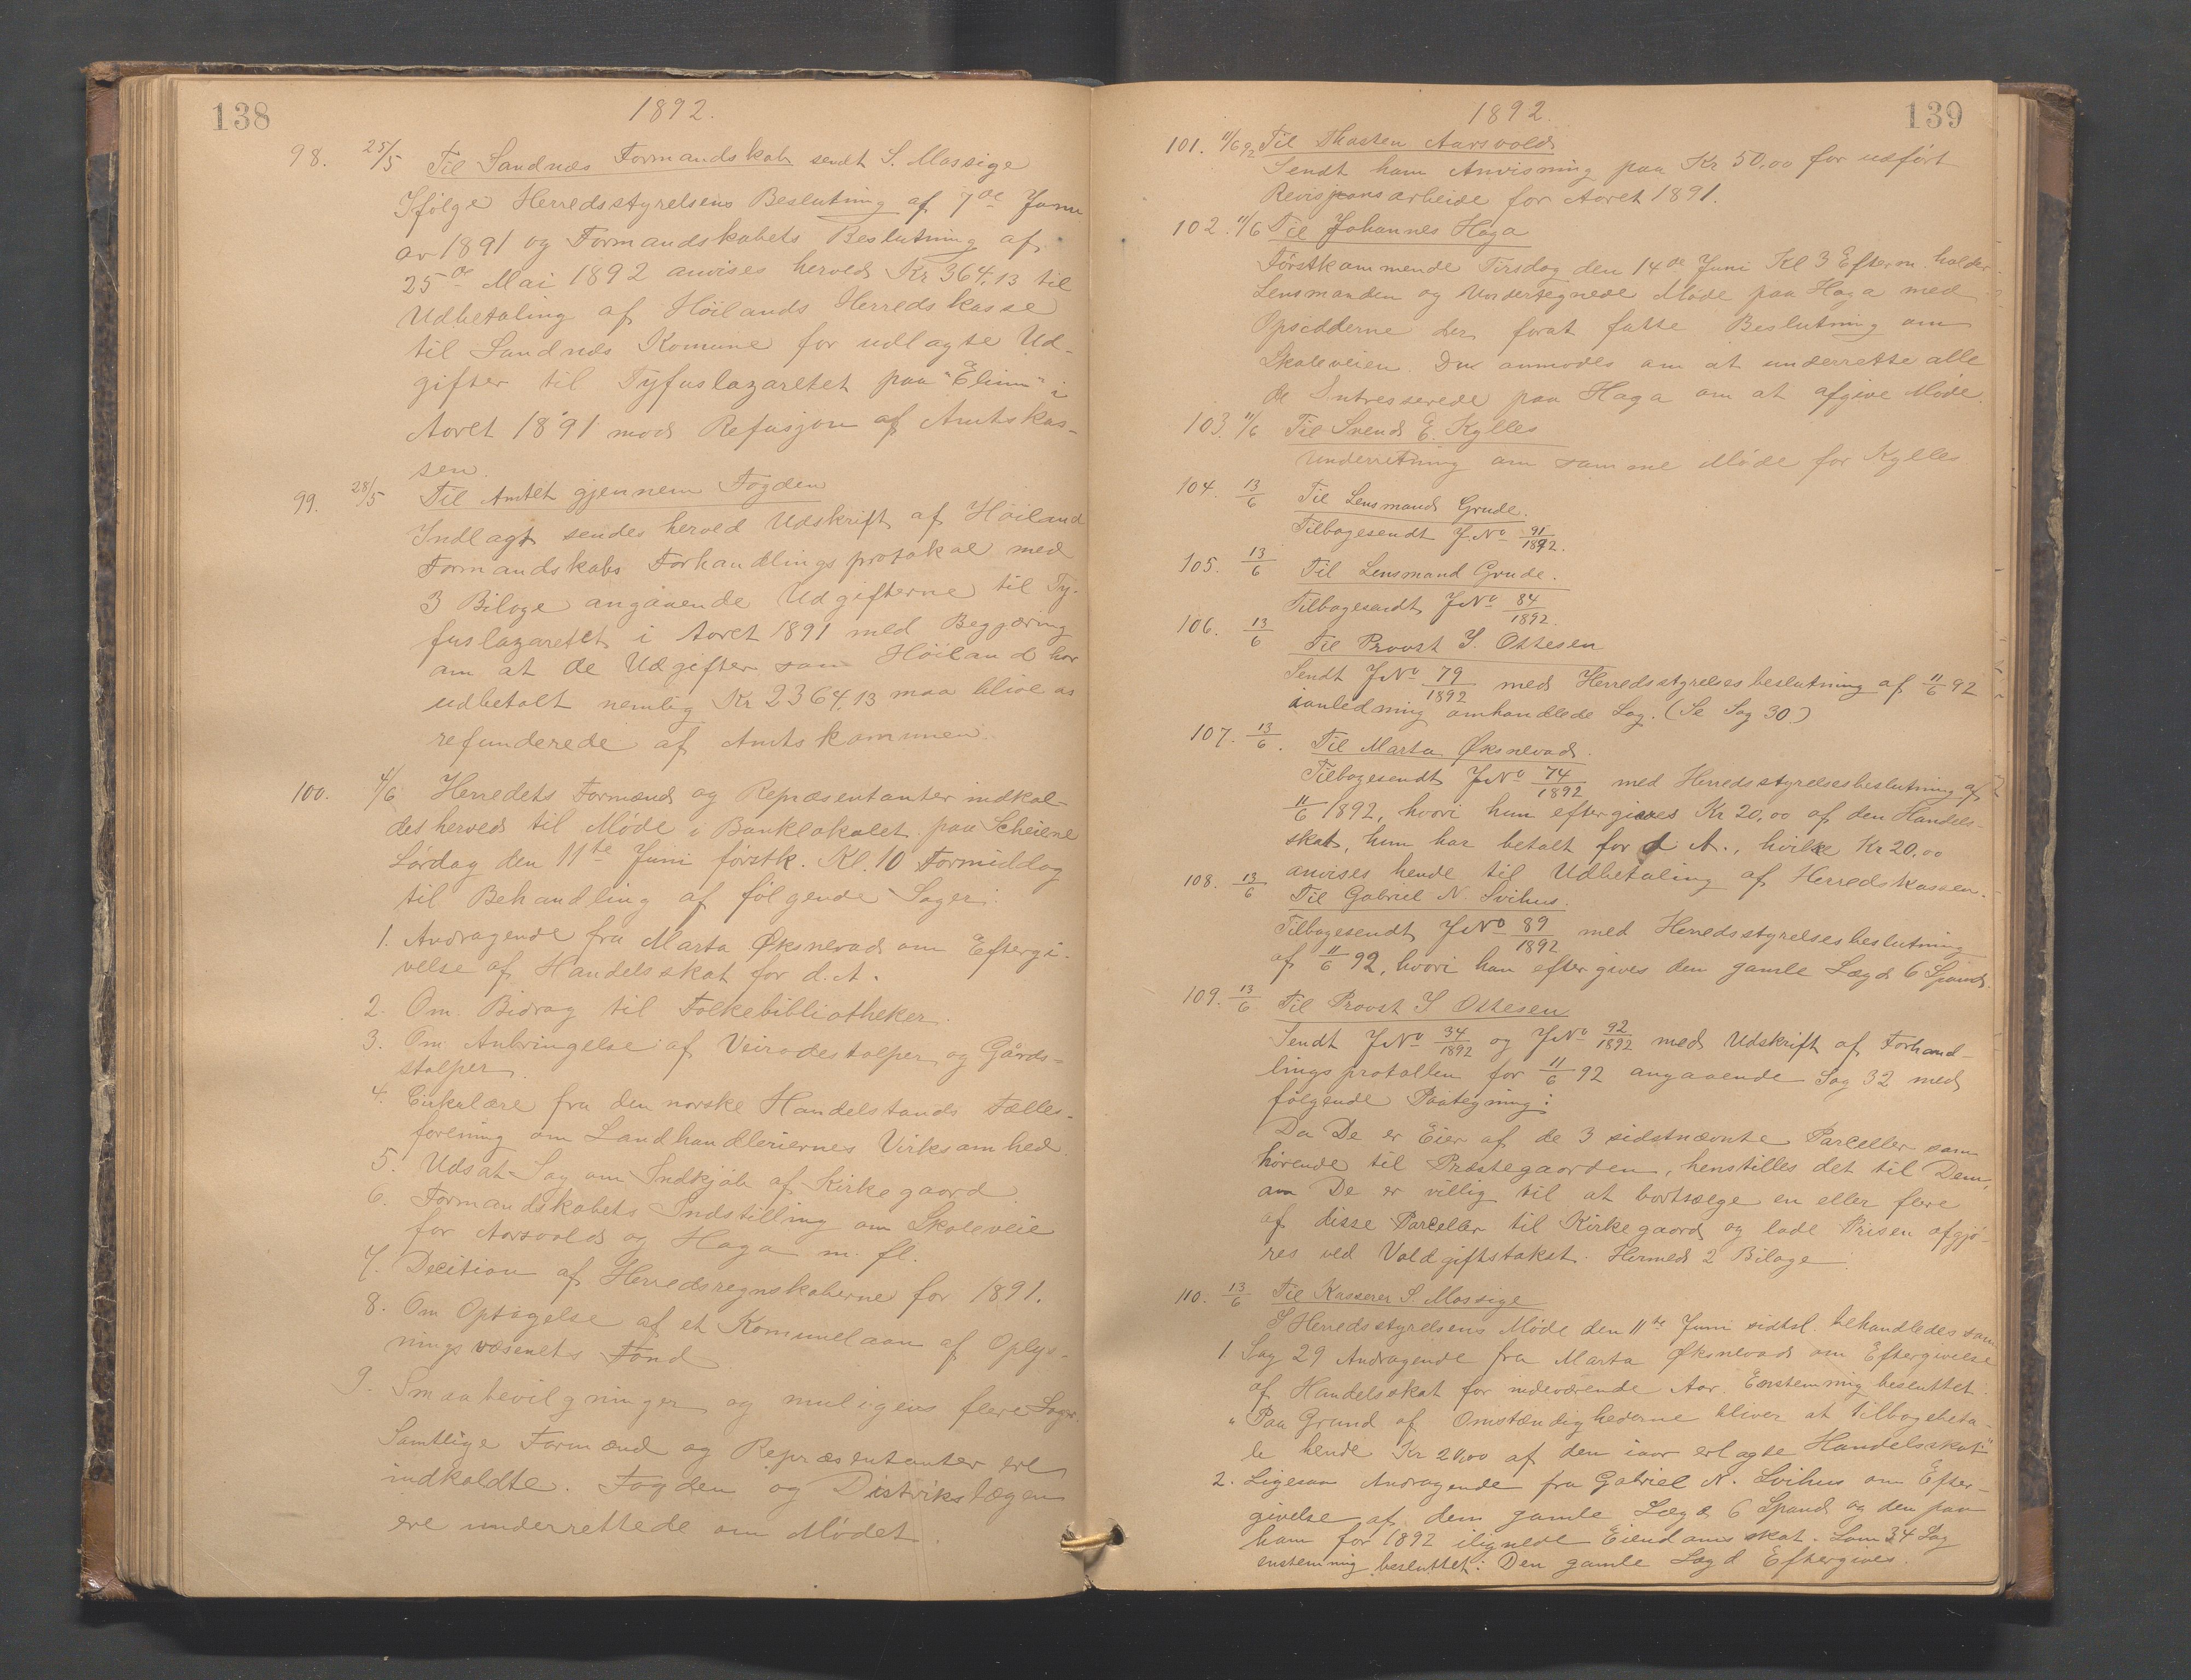 138
1892.
98. 25/5 Til Sandnæs Formandskab sendt S. Mossige
Ifølge Herredsstyrelsens Beslutning af 7de Janu
ar 1891 og Formandskabets Beslutning af
25de Mai 1892 anvises herved Kr 364,13 til
Udbetaling af Høilands Herredskasse
til Sandnæs Komune for udlagte Ud-
gifter til Tyfuslazarettet paa "Elim" i
Aaret 1891 mod Refusjon af Amtskas-
sen.
99. 28/5 Til Amtet gjennem Fogden
Indlagt sendes herved Udskrift af Høiland
Formandskabs Forhandlingsprotokol med
3 Bilage angaaende Udgifterne til Ty-
fuslazarettet i Aaret 1891 med Begjæring
om at de Udgifter som Høiland har
udbetalt nemlig Kr 2364,13 maa blive os
refunderede af Amtskommunen.
100. 4/6 Herredets Formænd og Repræsentanter indkal-
des herved til Møde i Banklokalet paa Scheiene
Lørdag den 11te Juni førstk. Kl. 10 Formiddag
til Behandling af følgende Sager:
1. Andragende fra Marta Øksnevad om Eftergi-
velse af Handelsskat for d. A.
2. Om Bidrag til Folkebibliotheker.
3. Om Anbringelse af Veirodestolper og Gårds-
stolper.
4. Cirkulære fra den norske Handelstands Fælles-
forening om Landhandleriernes Virksomhed.
5. Udsat Sag om Indkjøb af Kirkegaard.
6. Formandskabets Indstilling om Skoleveie
for Aarsvold og Haga m. fl.
7. Decition af Herredsregnskaberne for 1891.
8. Om Optagelse af et Komunelaan af Oplys-
ningsvæsenets Fond
9. Smaabevilgninger og muligens flere Sager.
Samtlige Formænd og Repræsentanter ere
indkaldte. Fogden og Distrikslægen
ere underrettede om Mødet.
139
1892.
101. 11/6 92 Til Thosten Aarsvold
Sendt ham Anvisning paa Kr 50,00 for udført
Revisjonsarbeide for Aaret 1891.
102. 11/6 Til Johannes Haga
Førstkommende Tirsdag den 14de Juni Kl 3 Efterm. holder
Lensmanden og Undertegnede Møde paa Haga med
Opsidderne der forat fatte Beslutning om
Skoleveien. Du anmodes om at underrette alle
de Intresserede paa Haga om at afgive Møde.
103. 11/6 Til Svend E. Kylles
Underretning om samme Møde for Kylles
104. 13/6 Til Lensmand Grude.
Tilbagesendt J.No 91/1892.
105. 13/6 Til Lensmand Grude.
Tilbagesendt J.No 84/1892.
106. 13/6 Til Provst I. Ottesen
Sendt J.No 79/1892 med Herredsstyrelsesbeslutning af 11/6 92
ianledning omhandlede Sag. (Se Sag 30)
107. 13/6. Til Marta Øksnevad.
Tilbagesendt J.No 74/1892 med Herredsstyrelsesbeslutning af
11/6 1892, hvori hun eftergives Kr 20,00 af den Handels-
skat, hun har betalt for d. A., hvilke Kr 20,00
anvises hende til Udbetaling af Herredskassen.
108. 13/6 Til Gabriel N Svihus.
Tilbagesendt J.No 89/1892 med Herredsstyrelsesbeslutning
af 11/6 92, hvori han eftergives den gamle Lægd 6 Spand.
109. 13/6 Til Provst I Ottesen
Sendt J.No 34/1892 og J.No 92/1892 med Udskrift af Forhand-
lingsprotollen for 11/6 92 angaaende Sag 32 med
følgende Paategning:
Da De er Eier af de 3 sidstnævnte Parceller som
hørende til Præstegaarden, henstilles det til Dem,
om De er villig til at bortsælge en eller flere
af disse Parceller til Kirkegaard og lade Prisen afgjø-
res ved Voldgiftstakst. Hermed 2 Bilage.
110. 13/6 Til Kasserer S. Mossige
I Herredsstyrelsens Møde den 11te Juni sidstl. behandledes som
1. Sag 29 Andragende fra Marta Øksnevad om Eftergivelse
af Handelsskat for indeværende Aar. Enstemmig besluttet.
"Paa Grund af Omstændighederne bliver at tilbagebeta-
le hende Kr 20,00 af den iaar erlagte Handelsskat"
2. Ligesaa Andragende fra Gabriel N. Svihus om Efter-
givelse af den gamle Lægd 6 Spand og den paa
ham for 1892 ilignede Eiendomsskat. Som 34 Sag
enstemmig besluttet: Den gamle Lægd Eftergives.